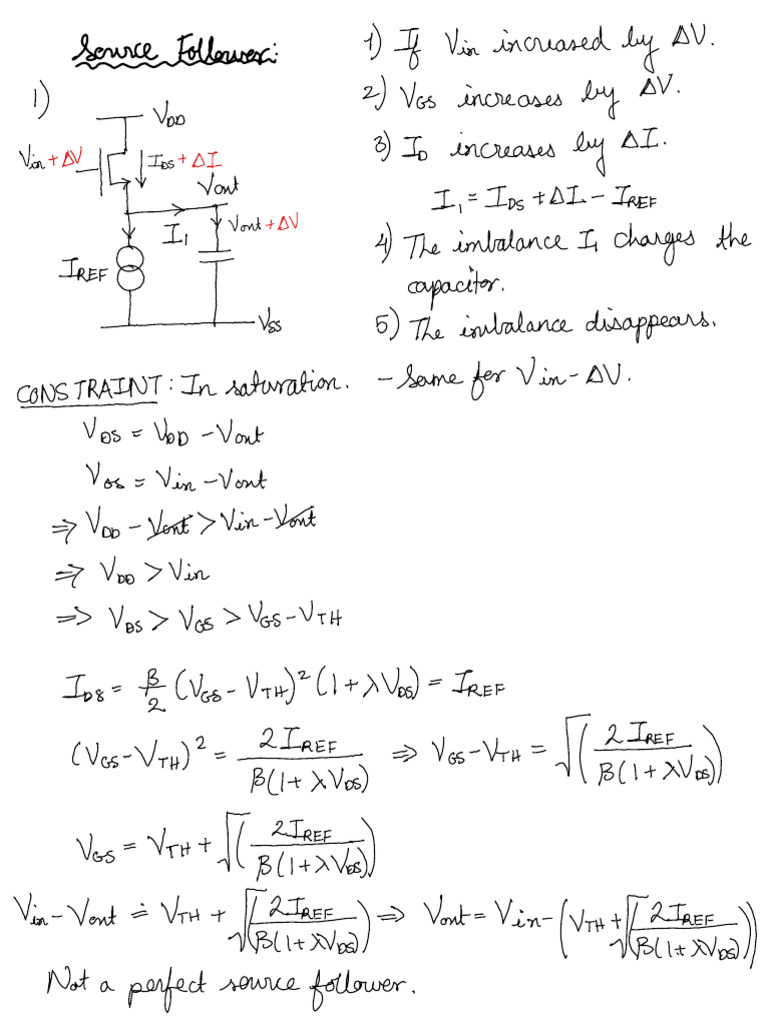 Source Follower:
1)
V_DD
Vin + ΔV
I_DS + ΔI
Vout
Vout + ΔV
I_1
I_REF
V_SS
1) If Vin increased by ΔV.
2) V_GS increases by ΔV.
3) I_D increases by ΔI.
I_1 = I_DS + ΔI - I_REF
4) The imbalance I_1 charges the
capacitor.
5) The imbalance disappears.
- Same for Vin - ΔV.
CONSTRAINT: In saturation.
V_DS = V_DD - Vout
V_GS = Vin - Vout
⇒ V_DD - Vout > Vin - Vout
⇒ V_DD > Vin
⇒ V_DS > V_GS > V_GS - V_TH
I_DS = β/2 (V_GS - V_TH)² (1 + λV_DS) = I_REF
(V_GS - V_TH)² = 2I_REF / β(1 + λV_DS) ⇒ V_GS - V_TH = √(2I_REF / β(1 + λV_DS))
V_GS = V_TH + √(2I_REF / β(1 + λV_DS))
Vin - Vout = V_TH + √(2I_REF / β(1 + λV_DS)) ⇒ Vout = Vin - (V_TH + √(2I_REF / β(1 + λV_DS)))
Not a perfect source follower.